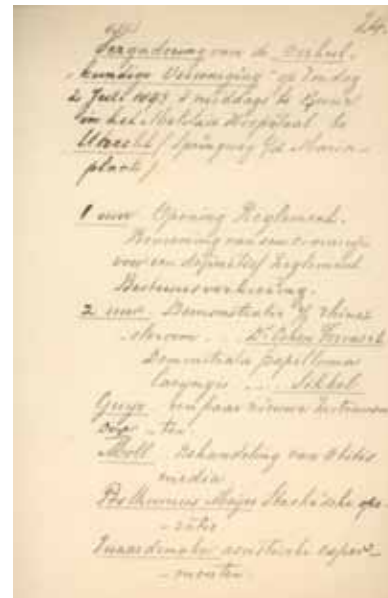 24.
Vergadering van de Oorheel-
kundige Vereeniging op Zondag
2 Juli 1893 's middags te
in het Militair Hospitaal te
Utrecht (Springweg Maria-
plaats)
1 uur Opening Reglement.
Benoeming van een commissie
voor een definitief Reglement
Bestuursverkiezing.
2 uur Demonstratie rhino
Dr. Cohen Tervaert
Demonstratie papilloma
laryngis Sikkel
Guye een paar nieuwe instrumen
ten
Moll behandeling van Otitis
media
Posthumus Meyes Stacke'sche ope-
ratie
Zwaardemaker acustische exper-
menten